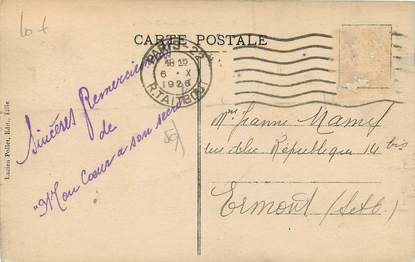 CARTE POSTALE
PARIS-22
18 30
6 - X
1926
R. TAITBOUT
Sincères Remerciements
de
"Mon Cœur a son secret
Lucien Pollet, Edit., Lille
Jeanne Mamet
rue de la République 14 bis
Ermont (S et O)